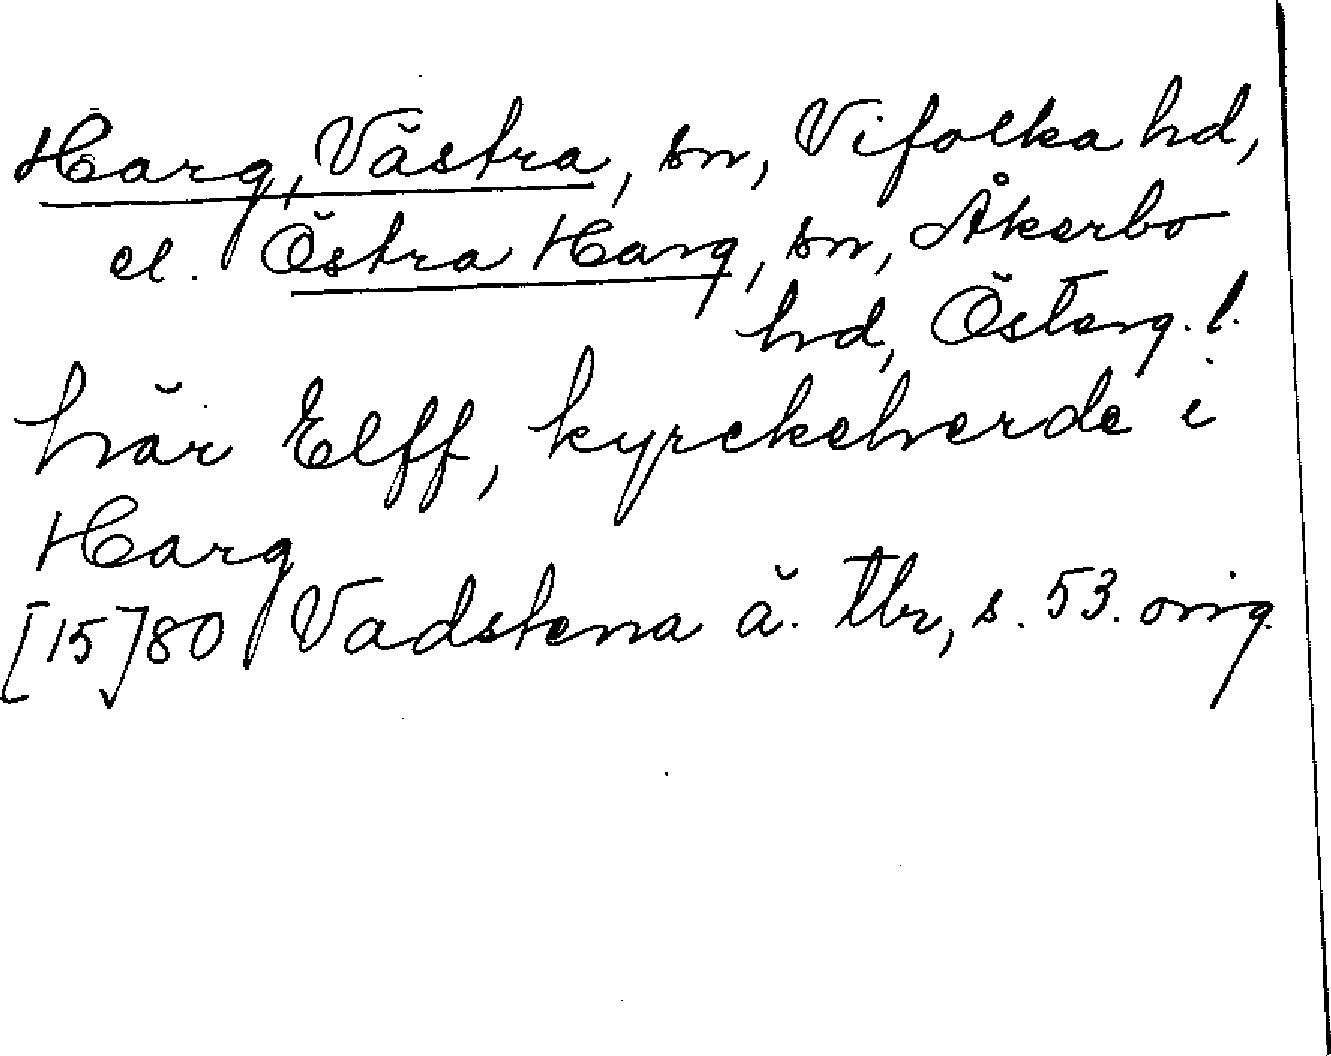 Harg, Västra, sn, Vifolka hd,
el. Östra Harg, sn, Åkerbo
hd, Österg. l.
här Elff, kyrckeherde i
Harg
[15]80 Vadstena ä. tbr, s. 53. orig.